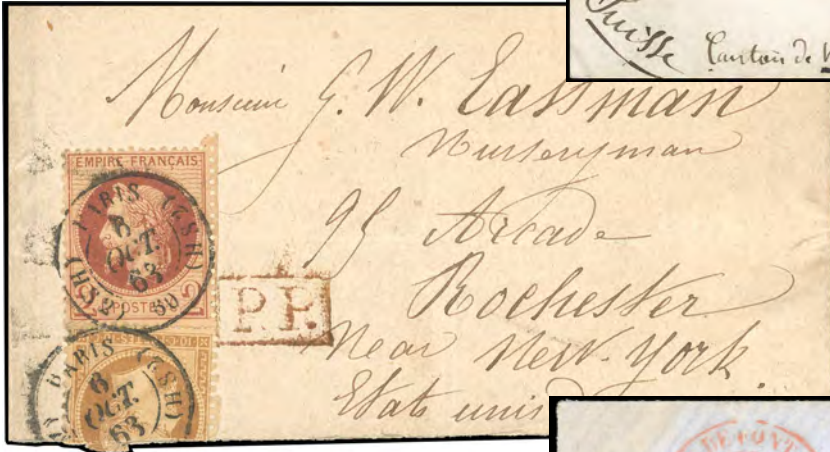 Suisse Canton de
Monsieur G. W. Eassman
Nurseryman
95 Arcade
Rochester
Near New. York
Etats unis
EMPIRE FRANÇAIS
PARIS (SH)
6
OCT.
63
POSTES
P.P.
PARIS (SH)
6
OCT.
63